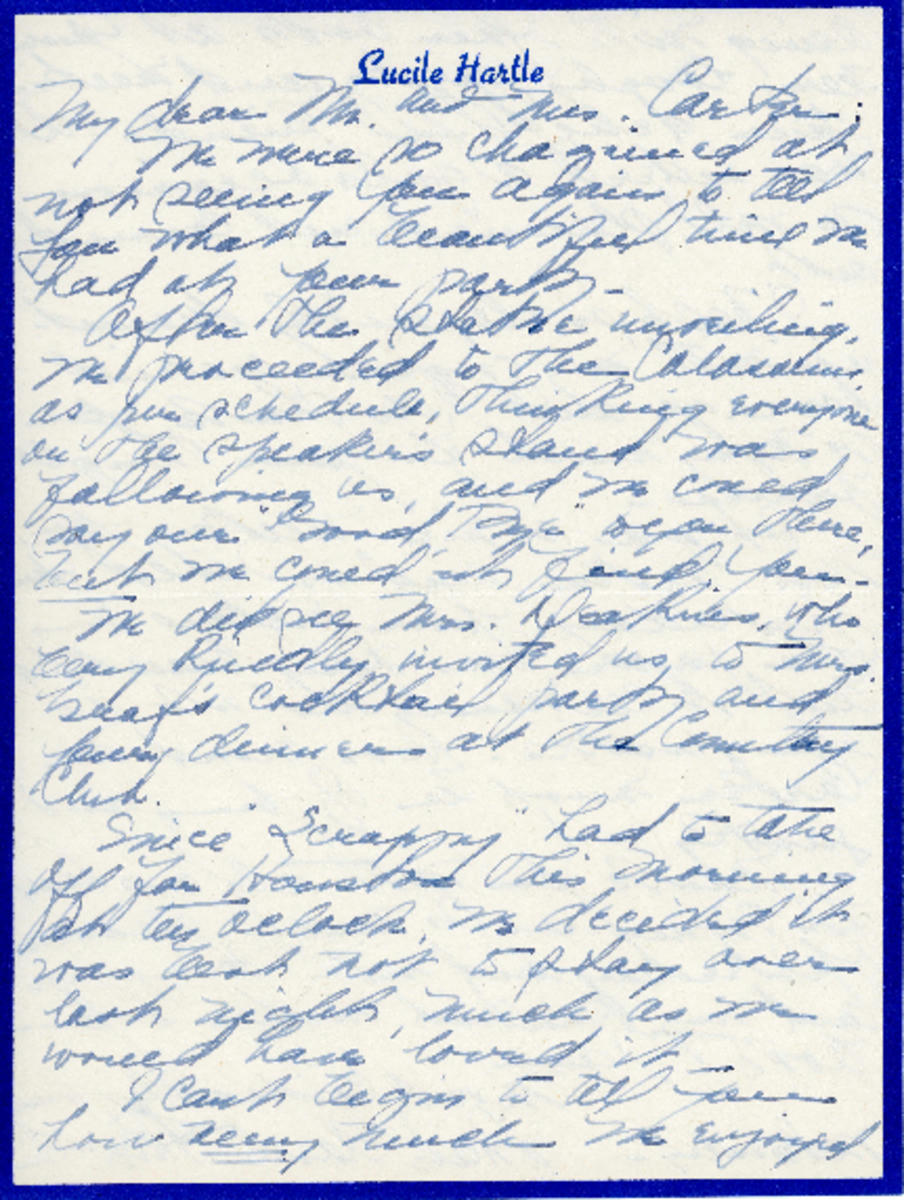 Lucile Hartle
My dear Mr. and Mrs. Carter:
We were so chagrined at
not seeing you again to tell
you what a beautiful time we
had at your party.
After the statue unveiling,
we proceeded to the Coliseum,
as per schedule, thinking everyone
on the speaker's stand was
following us, and we could
say our "Good Bye" over there,
but we could not find you -
We did see Mrs. Deakins, who
very kindly invited us to Mrs.
cocktail party and
your dinner at the Country
Club.
Since "Scrappy" had to take
off for Houston this morning
at ten oclock, we decided it
was best not to stay over
last night, much as we
would have loved it -
I can't begin to tell you
how very much we enjoyed